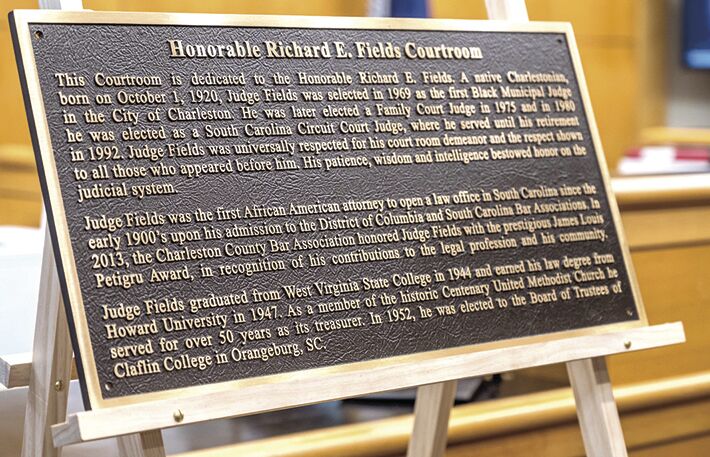 Honorable Richard E. Fields Courtroom
This Courtroom is dedicated to the Honorable Richard E. Fields. A native Charlestonian,
born on October 1, 1920, Judge Fields was selected in 1969 as the first Black Municipal Judge
in the City of Charleston. He was later elected a Family Court Judge in 1975 and in 1980
he was elected as a South Carolina Circuit Court Judge, where he served until his retirement
in 1992. Judge Fields was universally respected for his court room demeanor and the respect shown
to all those who appeared before him. His patience, wisdom and intelligence bestowed honor on the
judicial system.
Judge Fields was the first African American attorney to open a law office in South Carolina since the
early 1900's upon his admission to the District of Columbia and South Carolina Bar Associations. In
2013, the Charleston County Bar Association honored Judge Fields with the prestigious James Louis
Petigru Award, in recognition of his contributions to the legal profession and his community.
Judge Fields graduated from West Virginia State College in 1944 and earned his law degree from
Howard University in 1947. As a member of the historic Centenary United Methodist Church he
served for over 50 years as its treasurer. In 1952, he was elected to the Board of Trustees of
Claflin College in Orangeburg, SC.